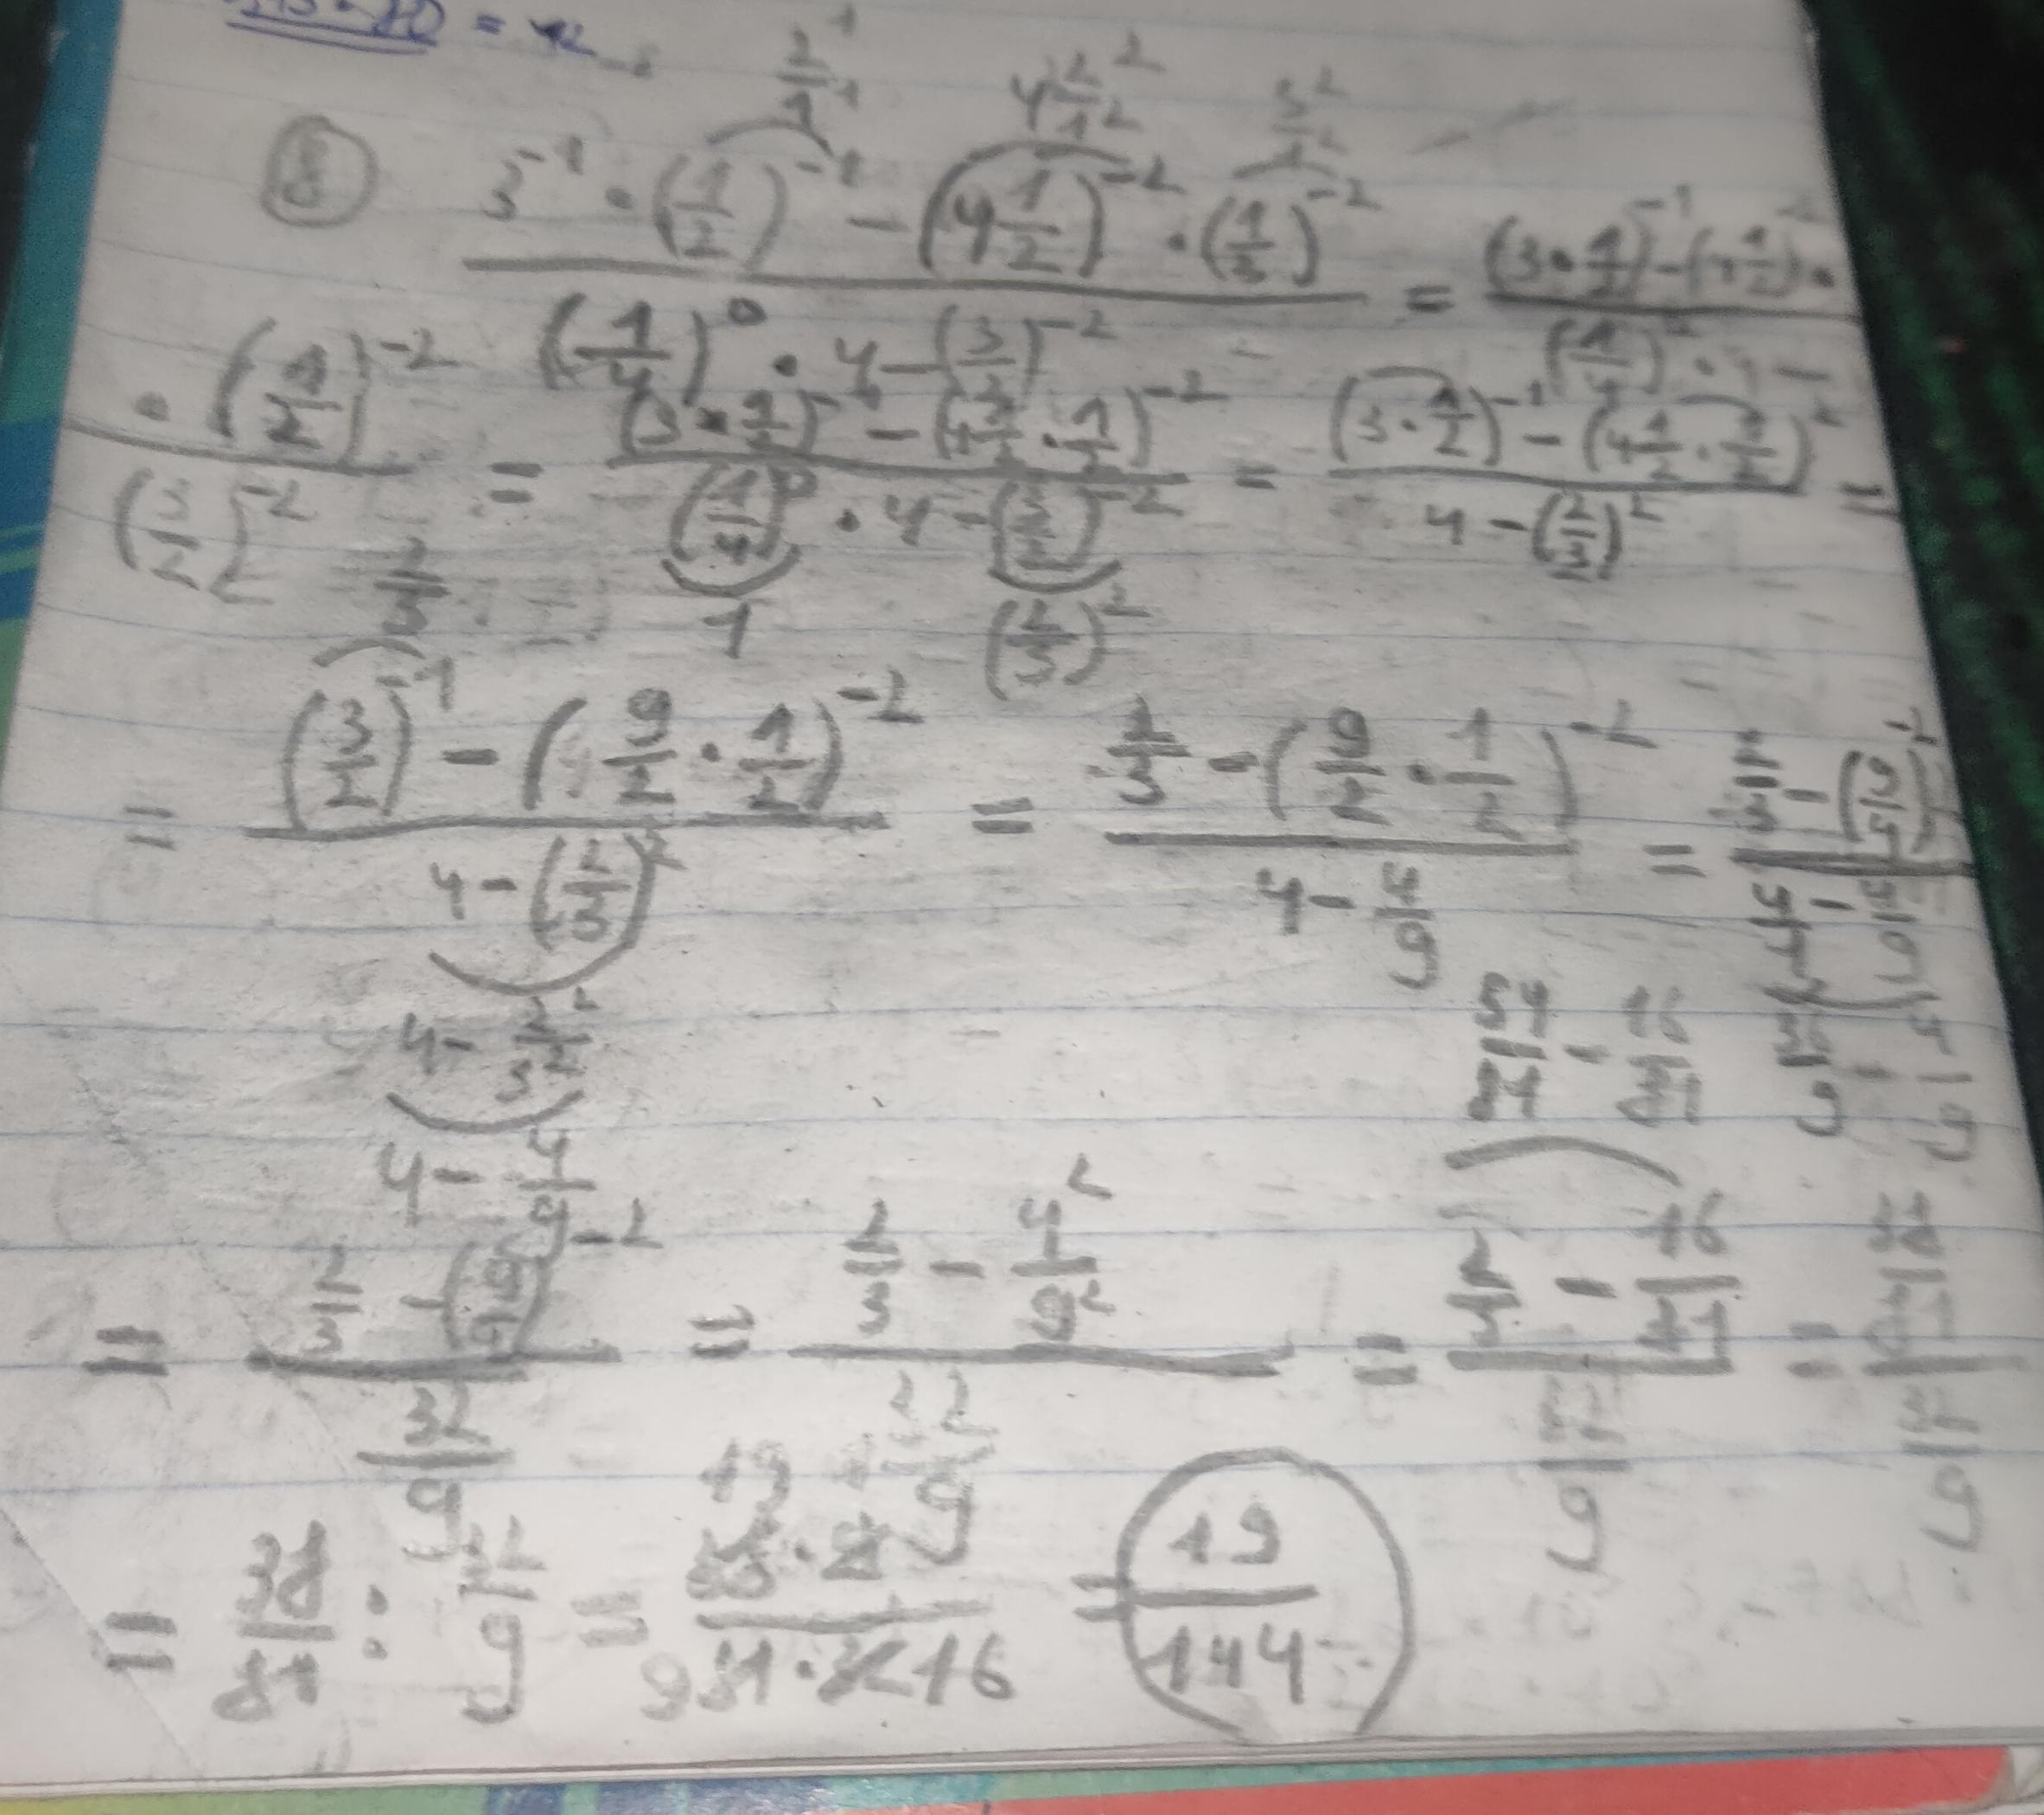 = 42
2^1/1^1 4 2^2/1^2 3^2/1^2
⑧ (3^-1 · (1/2)^-1 - (4 1/2)^-2 · (1/3)^-2) / ((1/4)^0 · 4 - (3/2)^-2) = (3 · 1/2)^-1 - (4 1/2)^-2 ·
· (1/2)^-2 / (3/2)^-2 = ((3 · 1/2)^-1 - (4 1/2 · 1/2)^-2) / ((1/4)^0 · 4 - (3/2)^-2) = ((3 · 1/2)^-1 - (4 1/2 · 1/2)^-2) / (4 - (2/3)^2) =
2/3 1 (2/3)^2
= ((3/2)^-1 - (9/2 · 1/2)^-2) / (4 - (2/3)^2) = (2/3 - (9/2 · 1/2)^-2) / (4 - 4/9) = (2/3 - (9/4)^-2) / (4/1 - 4/9)
4 - 2^2/3^2 54/81 - 16/81 36/9 - 4/9
4 - 4/9
= (2/3 - (9/4)^-2) / (32/9) = (2/3 - 4^2/9^2) / (32/9) = (2/3 - 16/81) / (32/9) = (38/81) / (32/9)
= 38/81 : 32/9 = 19 1 38 · 9 / 9 81 · 32 16 = 19/144